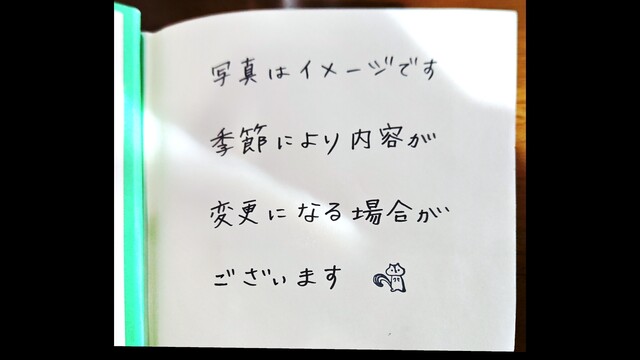 写真はイメージです
季節により内容が
変更になる場合が
ございます